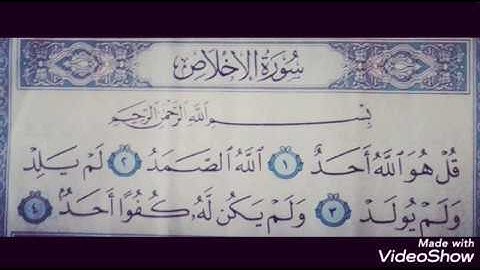 سُورَةُ الإِخْلَاصِ
بِسْمِ اللَّهِ الرَّحْمَٰنِ الرَّحِيمِ
قُلْ هُوَ اللَّهُ أَحَدٌ ١ اللَّهُ الصَّمَدُ ٢ لَمْ يَلِدْ
وَلَمْ يُولَدْ ٣ وَلَمْ يَكُن لَّهُ كُفُوًا أَحَدٌ ٤
Made with
VideoShow